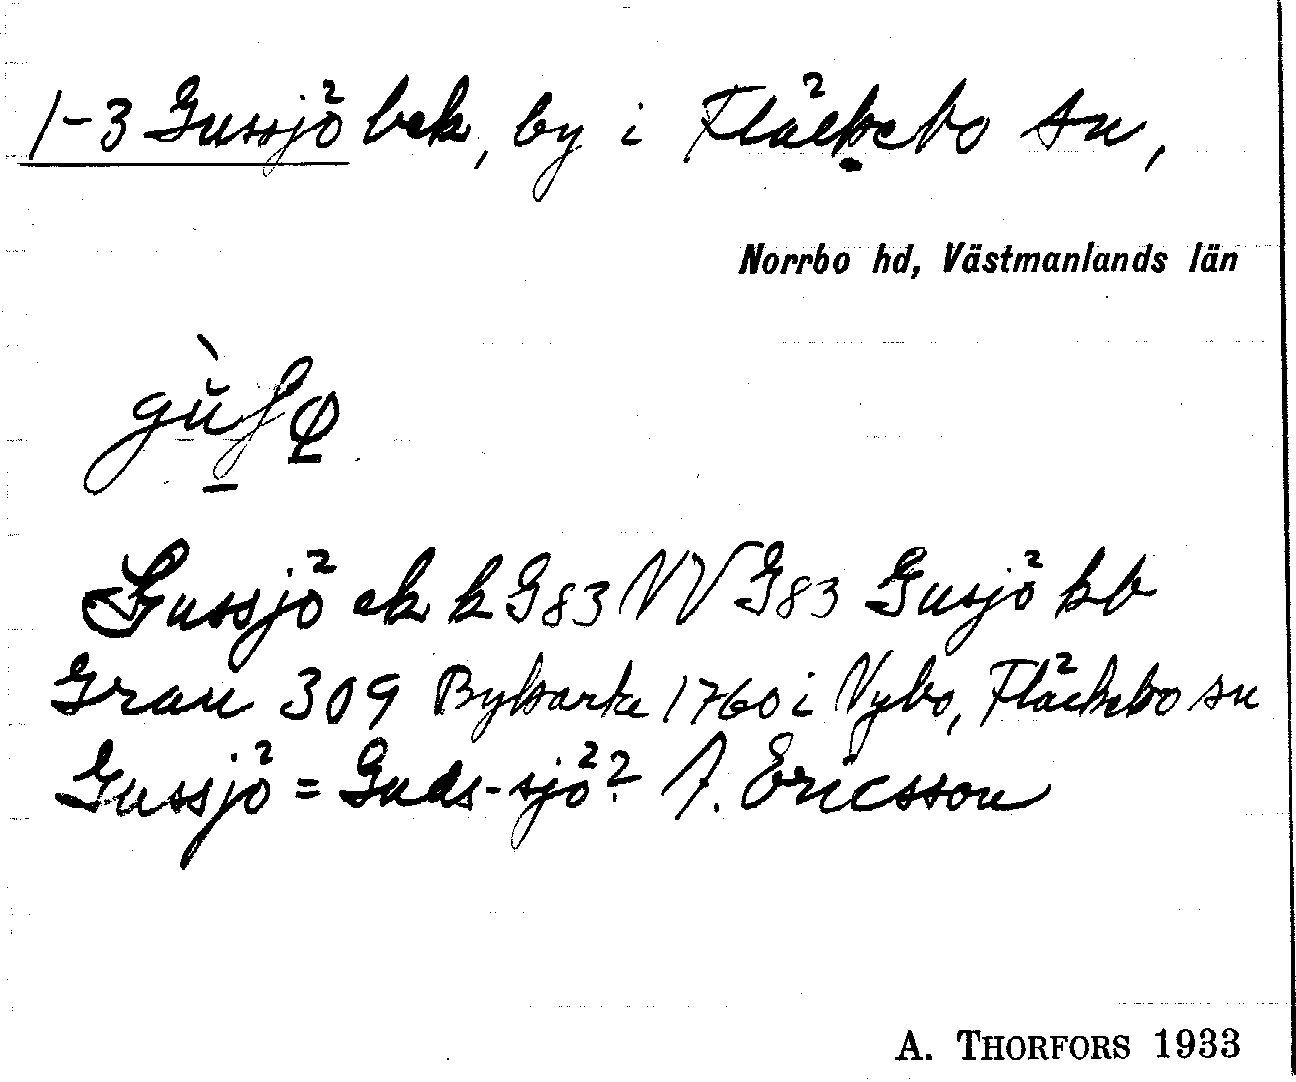 1-3 Gussjö bek, by i Fläckebo sn,
Norrbo hd, Västmanlands län
Gussjö ek k G83 VV G83 Gusjö kb
Gran 309 Bykarta 1760 i Vybo, Fläckebo sn
Gussjö = Guds-sjö? A. Ericsson
A. THORFORS 1933